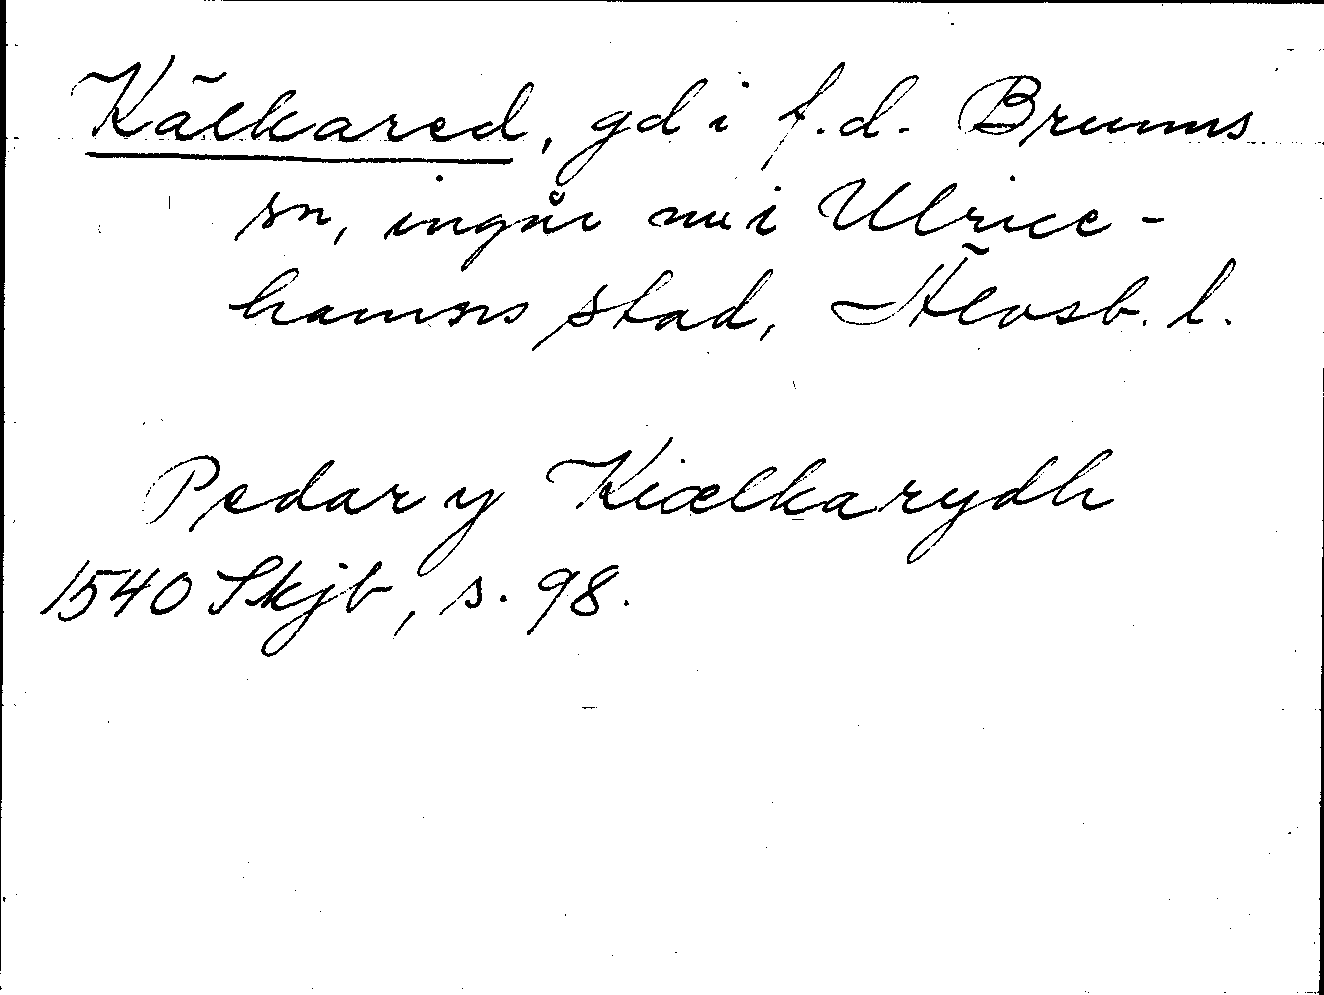 Kälkared, gd i f.d. Brunns
sn, ingår nu i Ulrice-
hamns stad, Älvsb. l.
Pedar y Kiælkarydh
1540 Skjb, s. 98.